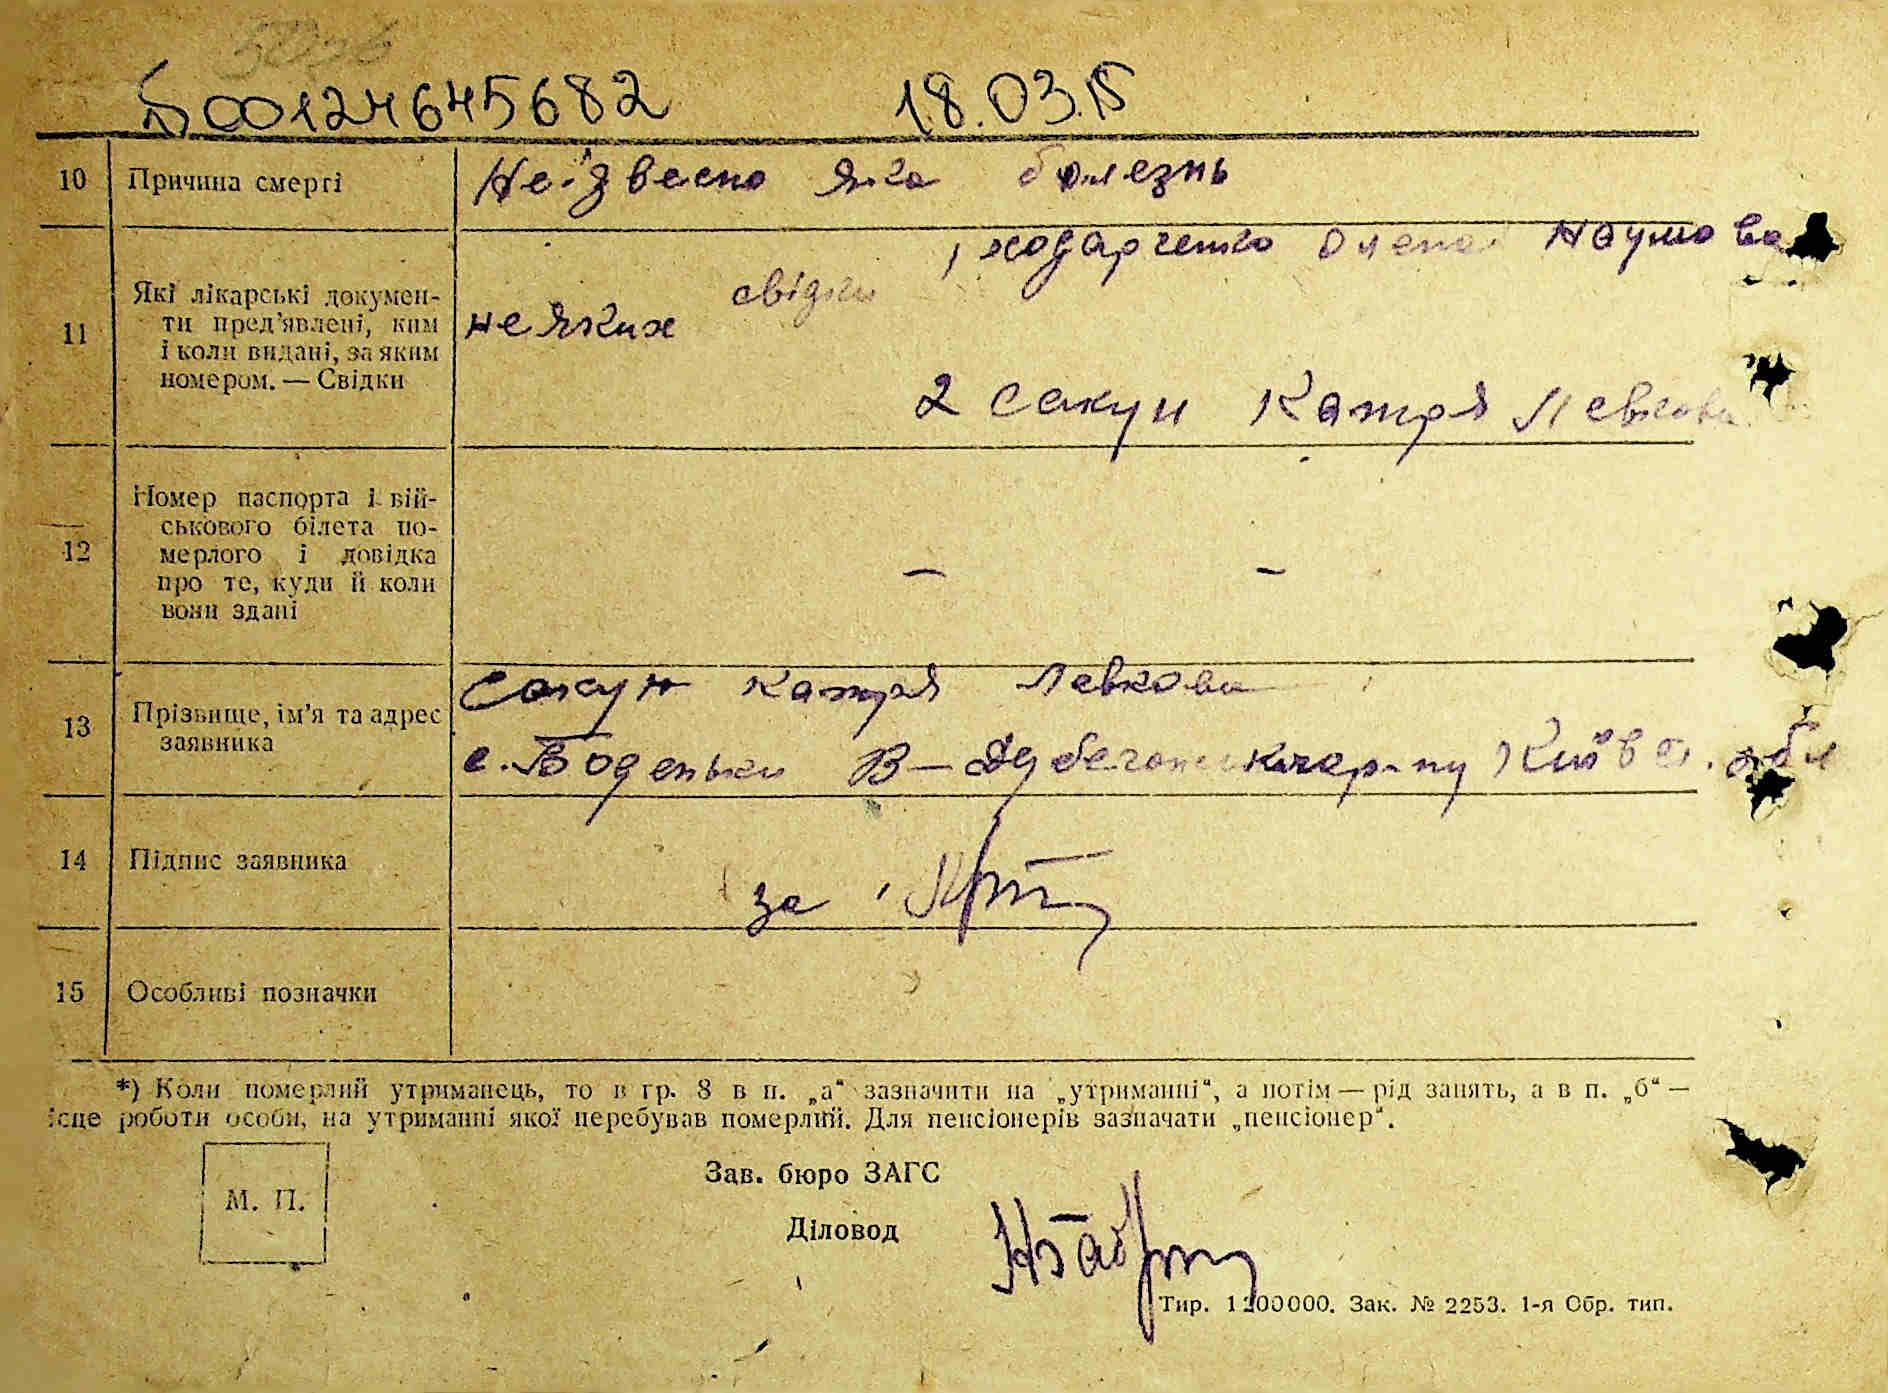 00124645682 18.03.15
10 Причина смерті Неізвесно яка болезнь
11 Які лікарські докумен-
ти пред'явлені, ким
і коли видані, за яким
номером. — Свідки
неяких свідки
1 ходарченко олена Наумова
2 Сакун Катря Левкова
12 Номер паспорта і вій-
ськового білета по-
мерлого і довідка
про те, куди й коли
вони здані
— —
13 Прізвище, ім'я та адрес
заявника
Сакун Катря Левкова
с. Боденьки В—Дубечанск Київ обл
14 Підпис заявника
за
15 Особливі позначки
*) Коли померлий утриманець, то в гр. 8 в п. „а“ зазначити на „утриманні“, а потім — рід занять, а в п. „б“ —
ісце роботи особи, на утриманні якої перебував померлий. Для пенсіонерів зазначати „пенсіонер“.
М. П.
Зав. бюро ЗАГС
Діловод
Тир. 1200000. Зак. № 2253. 1-я Обр. тип.